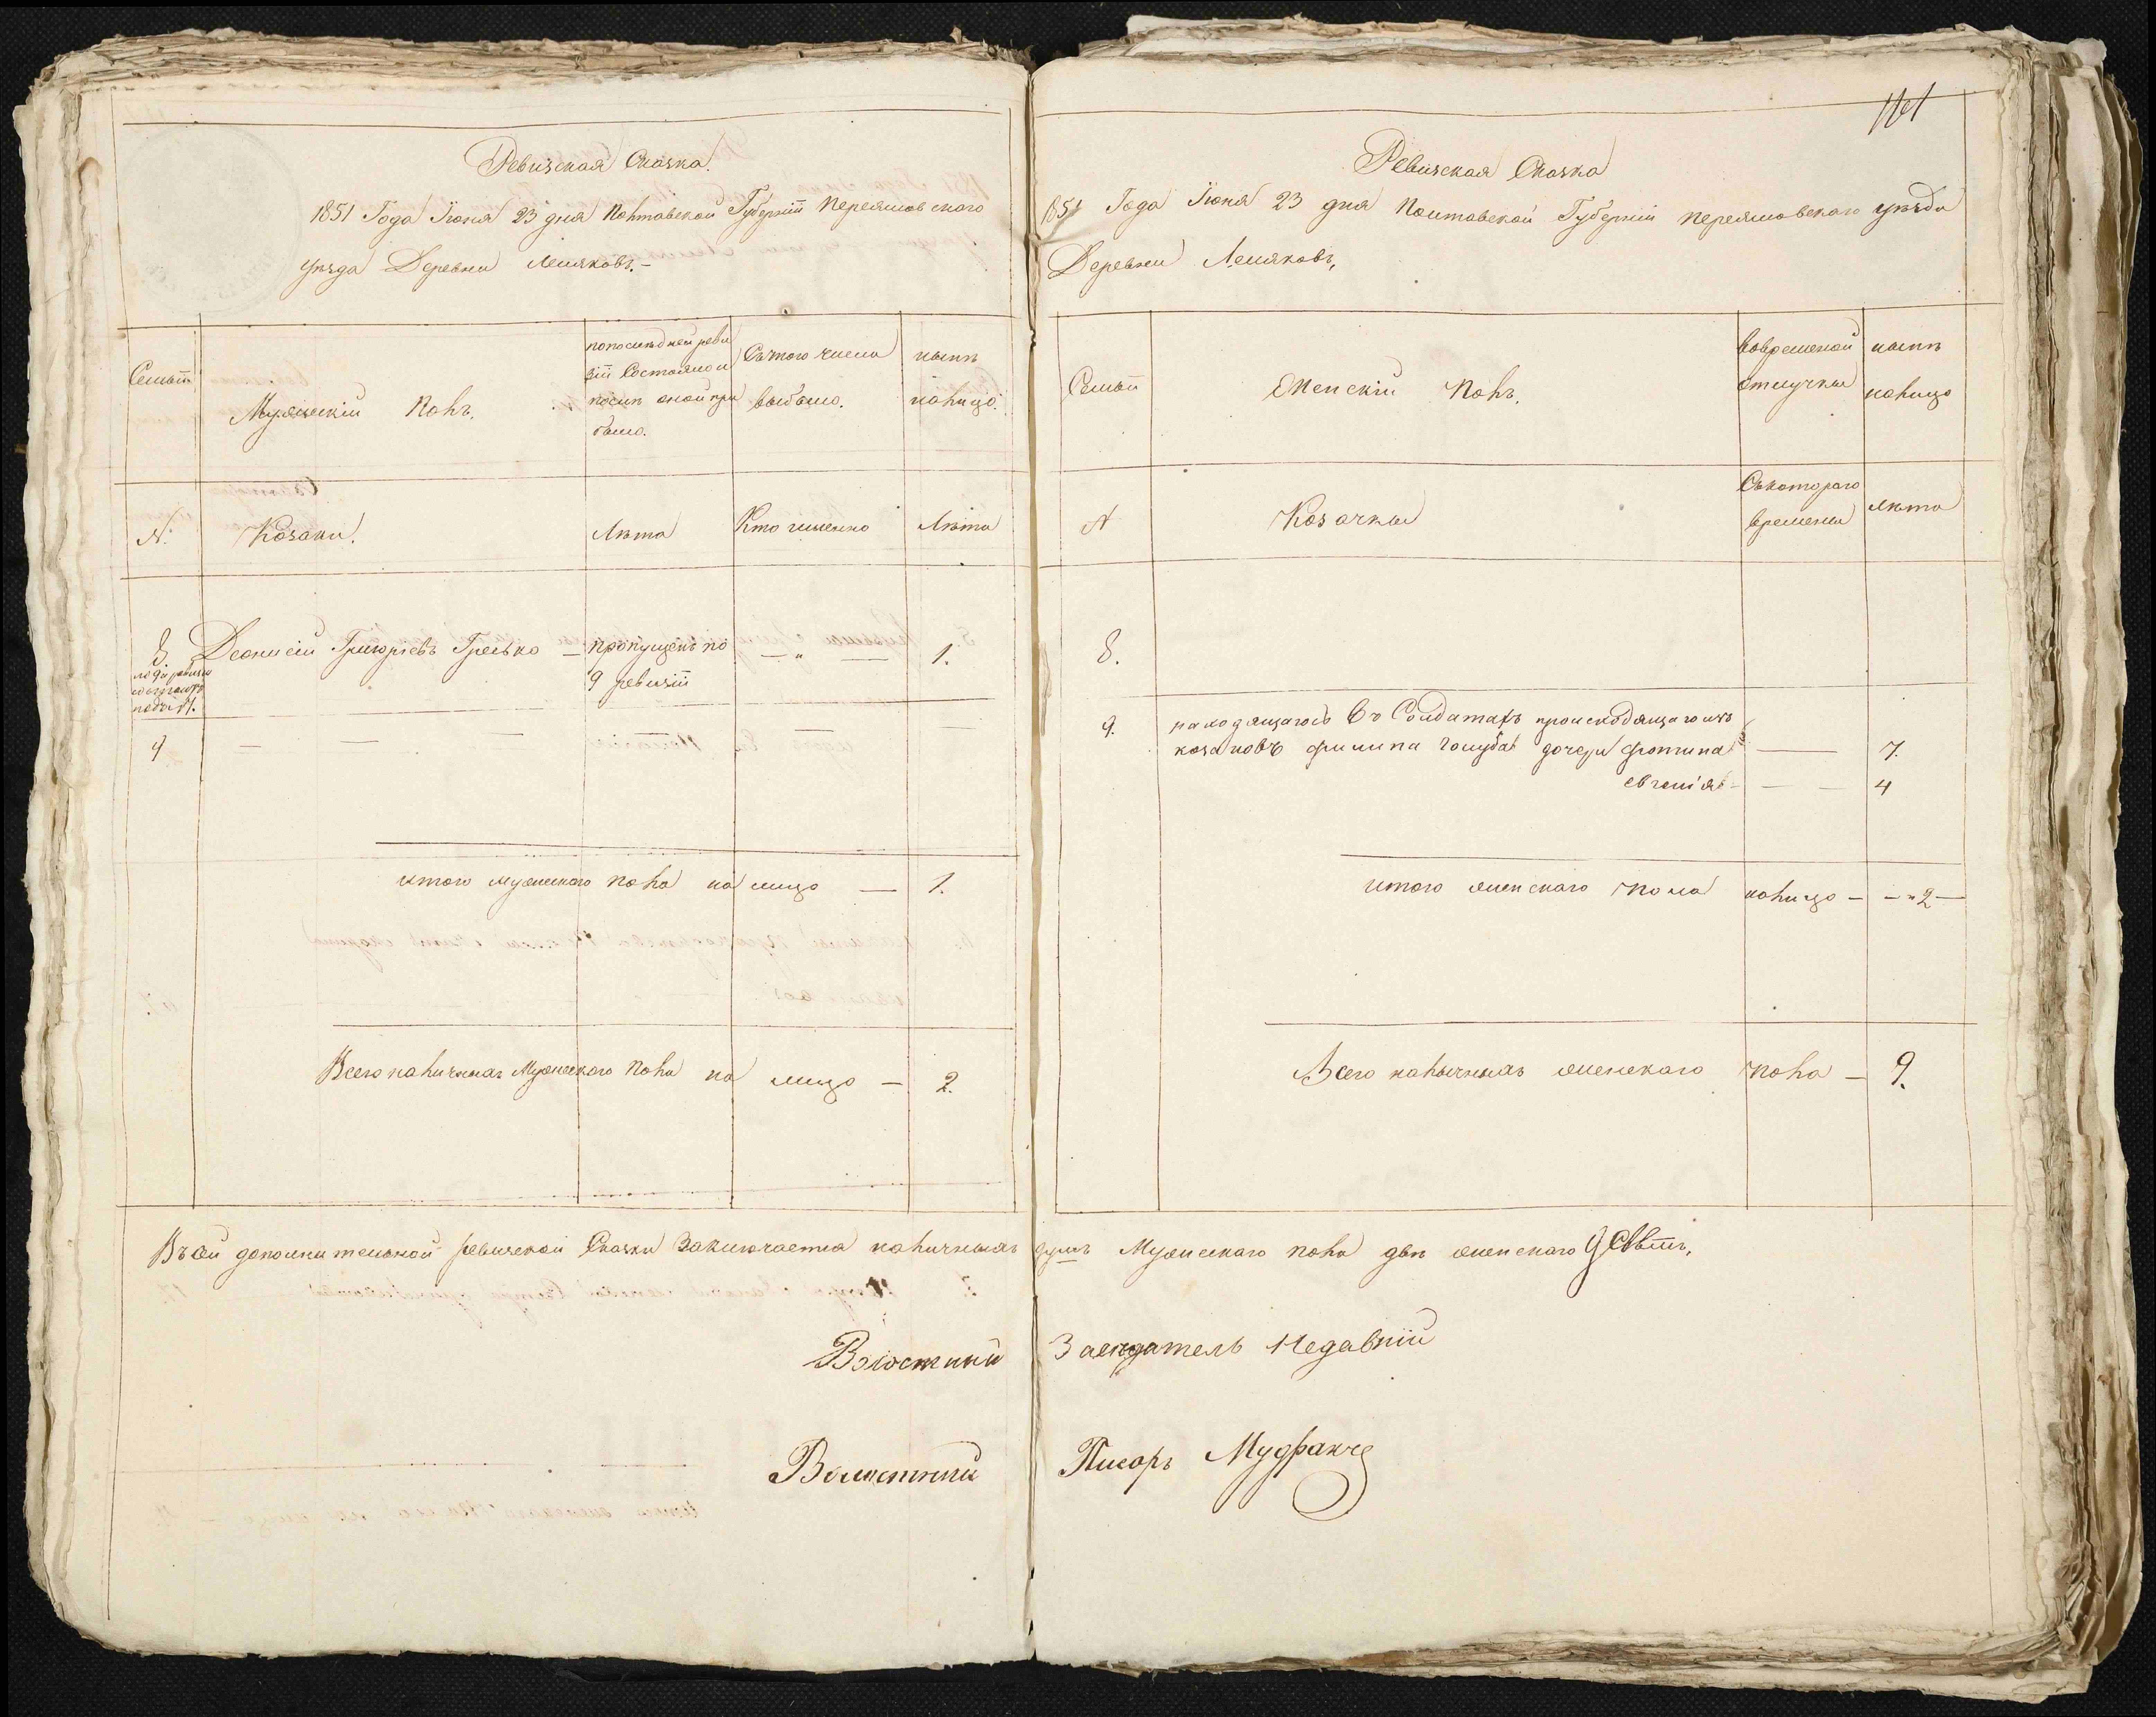 Ревизская Сказка.
1851 Года Іюня 23 дня Полтавской Губерніи Переяславского
уезда Деревни Лемяковъ.-
Семьи
Мужескій Полъ.
попоследней реви
зіи Состояло и
после оной при
было.
Съ того числа
выбыло.
ныне
налицо.
N.
Козаки.
Лета
Кто именно
Лета
8.
по 9й ревизіи
состоитъ
подъ N.
Деонисій Григорьевъ Гресько — пропущенъ по — " — 1.
9 ревизіи
9 — — — — —
итого мужеского пола на лицо — 1.
Всего наличныхъ Мужеского пола на лицо — 2.
161
Ревизская Сказка
1851 Года Іюня 23 дня Полтавской Губерніи Переяславского уезда
Деревни Лемяковъ,
Семьи
Женскій Полъ.
вовременой
отлучки
ныне
налицо
N
Козачки
Съкотораго
времени
лета
8.
9. находящагось въ Солдатахъ происходящаго изъ
козаковъ филипа Голуба дочери фотина — 7.
евгенія - — — 4
итого женскаго пола налицо — — " 2 —
Всего наличныхъ женскаго пола — 9.
Въ сей дополнительной ревизской Сказки Заключается наличныхъ душъ Мужескаго пола две женскаго девять,
Волостный Заседатель Недавній
Волостный Писарь Мудракъ